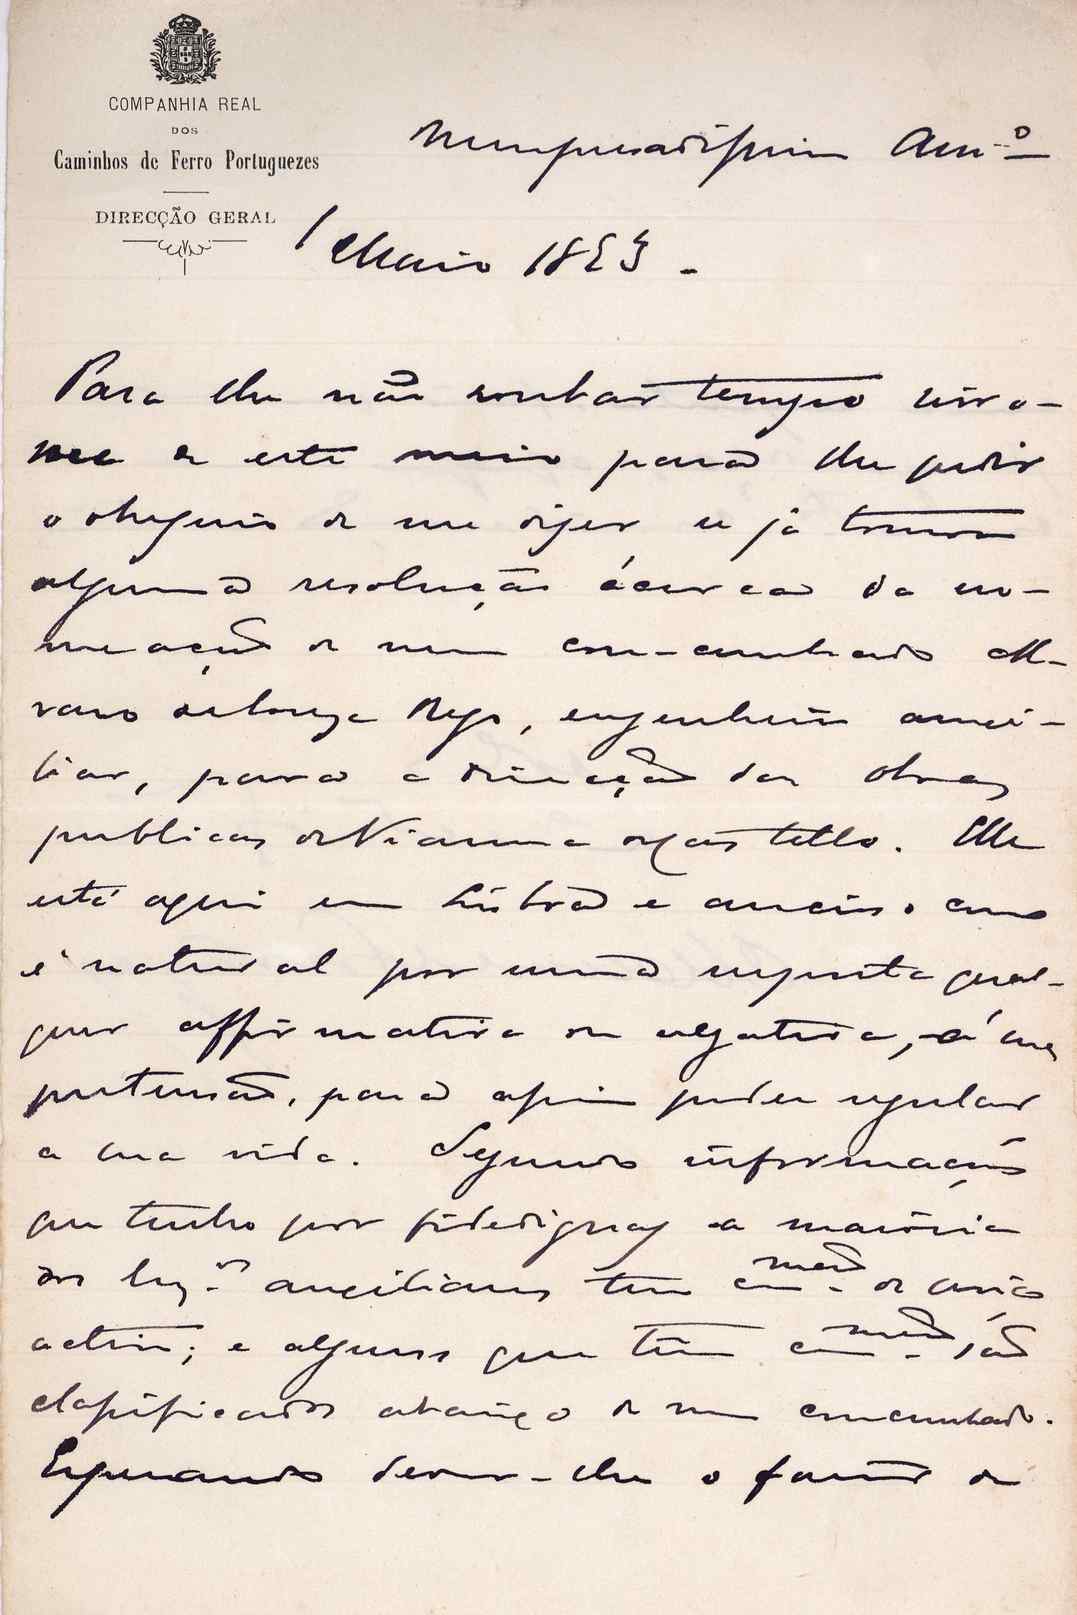 COMPANHIA REAL
DOS
Caminhos de Ferro Portuguezes
DIRECÇÃO GERAL
Am.º
1 Maio 1893.
Para lhe não roubar tempo sirvo-
me de este meio para lhe pedir
o obsequio de me dizer se já tomou
alguma resolução ácerca da no-
meação de meu con-cunhado Al-
varo de Rego, engenheiro auxi-
liar, para a direcção das obras
publicas de Vianna do Castello. Elle
está aqui em Lisboa e ancioso como
é natural por uma resposta qual-
quer affirmativa ou negativa, á sua
pretensão, para assim poder regular
a sua vida. Segundo informações
que tenho por fidedignas a maioria
dos Eng.ros auxiliares tem de serviço
activo; e alguns que têm são
classificados abaixo de meu concunhado.
Esperando dever-lhe o favor de